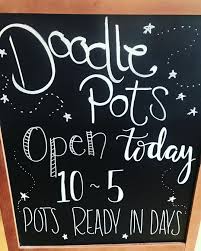 Doodle
Pots
Open today
10~5
POTS READY IN DAYS